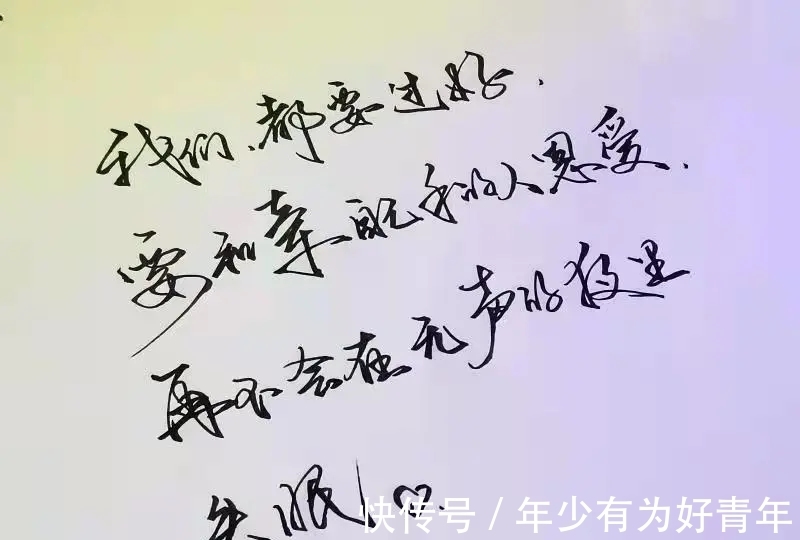 我们、都要过好.
要和牵既手的人恩爱.
再不会在无声的夜里
失眠!♡.
快传号 / 年少有为好青年